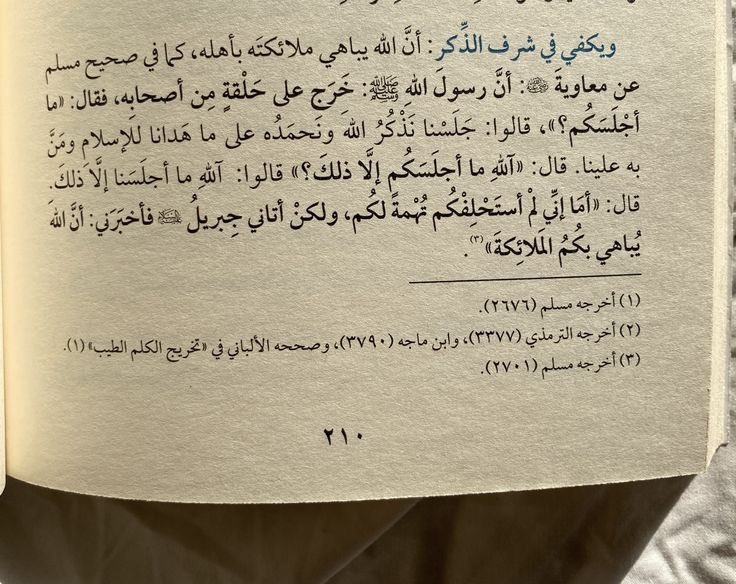 ويكفي في شرف الذِّكر: أنَّ الله يباهي ملائكتَه بأهله، كما في صحيح مسلم
عن معاويةَ ﵁: أنَّ رسولَ اللهِ ﷺ: خَرَج على حَلْقةٍ مِن أصحابِه، فقال: «ما
أجْلَسَكُم؟»، قالوا: جَلَسْنا نَذْكُرُ اللهَ ونَحمَدُه على ما هَدانا للإسلامِ ومَنَّ
به علينا. قال: «آللهِ ما أجلَسَكُم إلَّا ذلكَ؟» قالوا: آللهِ ما أجلَسَنا إلَّا ذلكَ.
قال: «أمَا إنِّي لمْ أستَحْلِفْكُم تُهْمةً لكُم، ولكنْ أتاني جِبريلُ ﵇ فأخبَرَني: أنَّ اللهَ
يُباهي بكُمُ المَلائِكةَ»(٣).
(١) أخرجه مسلم (٢٦٧٦).
(٢) أخرجه الترمذي (٣٣٧٧)، وابن ماجه (٣٧٩٠)، وصححه الألباني في «تخريج الكلم الطيب» (١).
(٣) أخرجه مسلم (٢٧٠١).
٢١٠